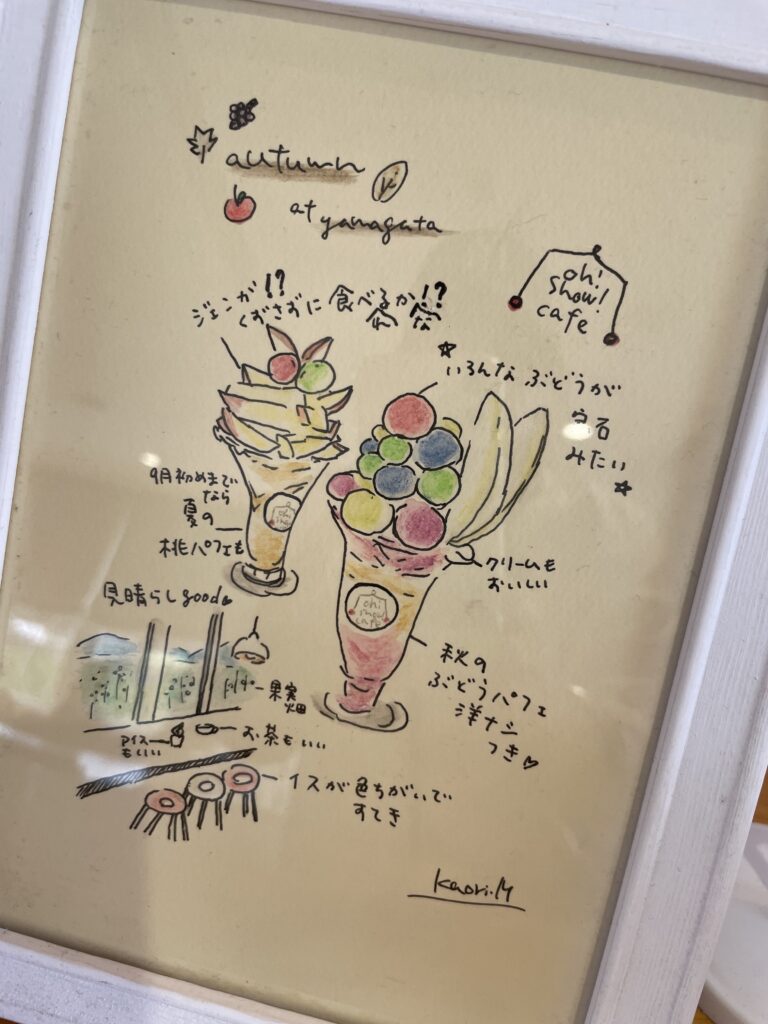 autumn
at yamagata
oh!
show!
cafe
ジェンが!?
くずさずに食べれるかな!?
いろんなぶどうが
宝石
みたい
9月初めまで
なら
夏の
桃パフェも
クリームも
おいしい
oh!
show!
cafe
見晴らしgood
秋の
ぶどうパフェ
洋ナシ
つき♡
果実
畑
アイス
もいい
お茶もいい
イスが色ちがいで
すてき
Kaori.M